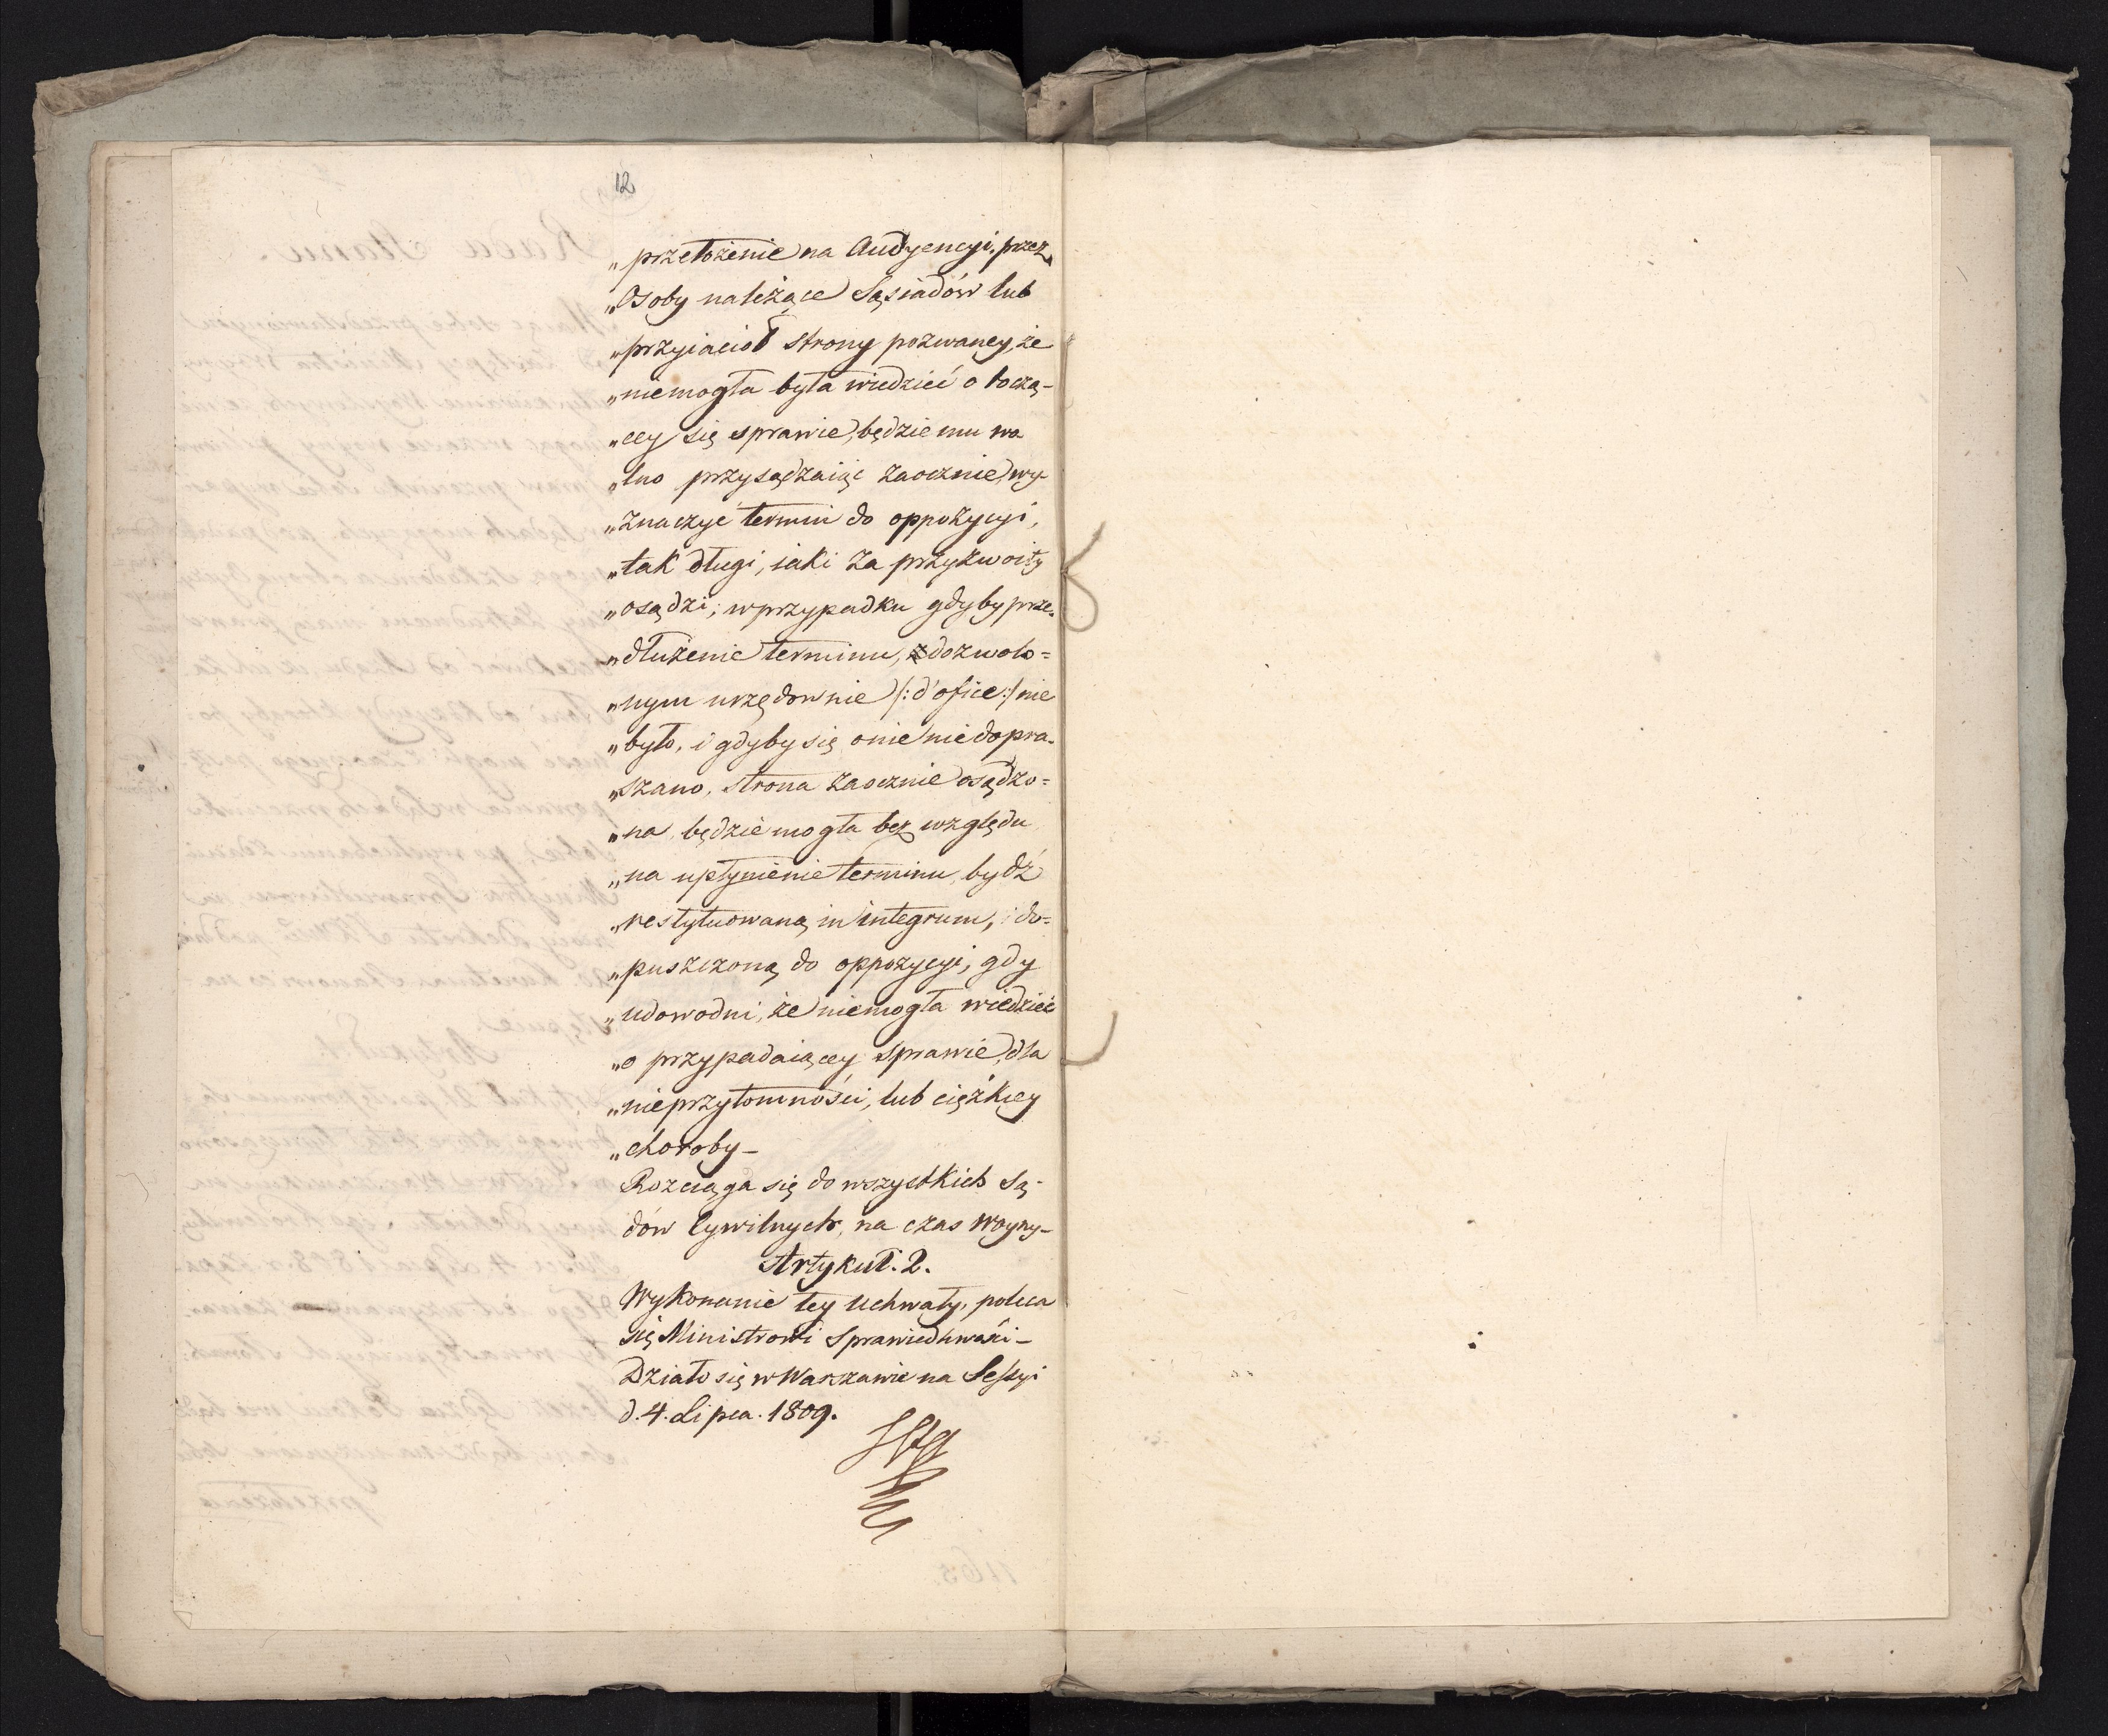 12
„przełożenie na Audyencyi, przez
„Osoby należące Sąsiadów lub
„przyiaciół strony pozwaney, że
„niemogła była wiedzieć o toczą-
„cey się sprawie, będzie mu wo
„lno przysądzaiąc zaocznie, wy-
„znaczyć termin do oppozycyi,
„tak długi, iaki za przyzwoity
„osądzi; w przypadku gdyby prze-
„dłużenie terminu, dozwolo=
„nym urzędownie /: d'ofice :/ nie
„było, i gdyby się o nie niedopra-
„szano, strona zaocznie osądzo=
„na, będzie mogła bez względu
„na upłynienie terminu, bydź
„restytuowaną in integrum, i do=
„puszczoną do oppozycyi, gdy
„udowodni, że niemogła wiedzieć
„o przypadaiącey sprawie, dla
„nieprzytomności, lub ciężkiey
„choroby –
Rozciąga się do wszystkich Są-
dów Cywilnych, na czas woyny –
Artykuł. 2.
Wykonanie tey Uchwały, poleca
się Ministrowi Sprawiedliwości –
Działo się w Warszawie na Sessyi
d. 4. Lipca. 1809.